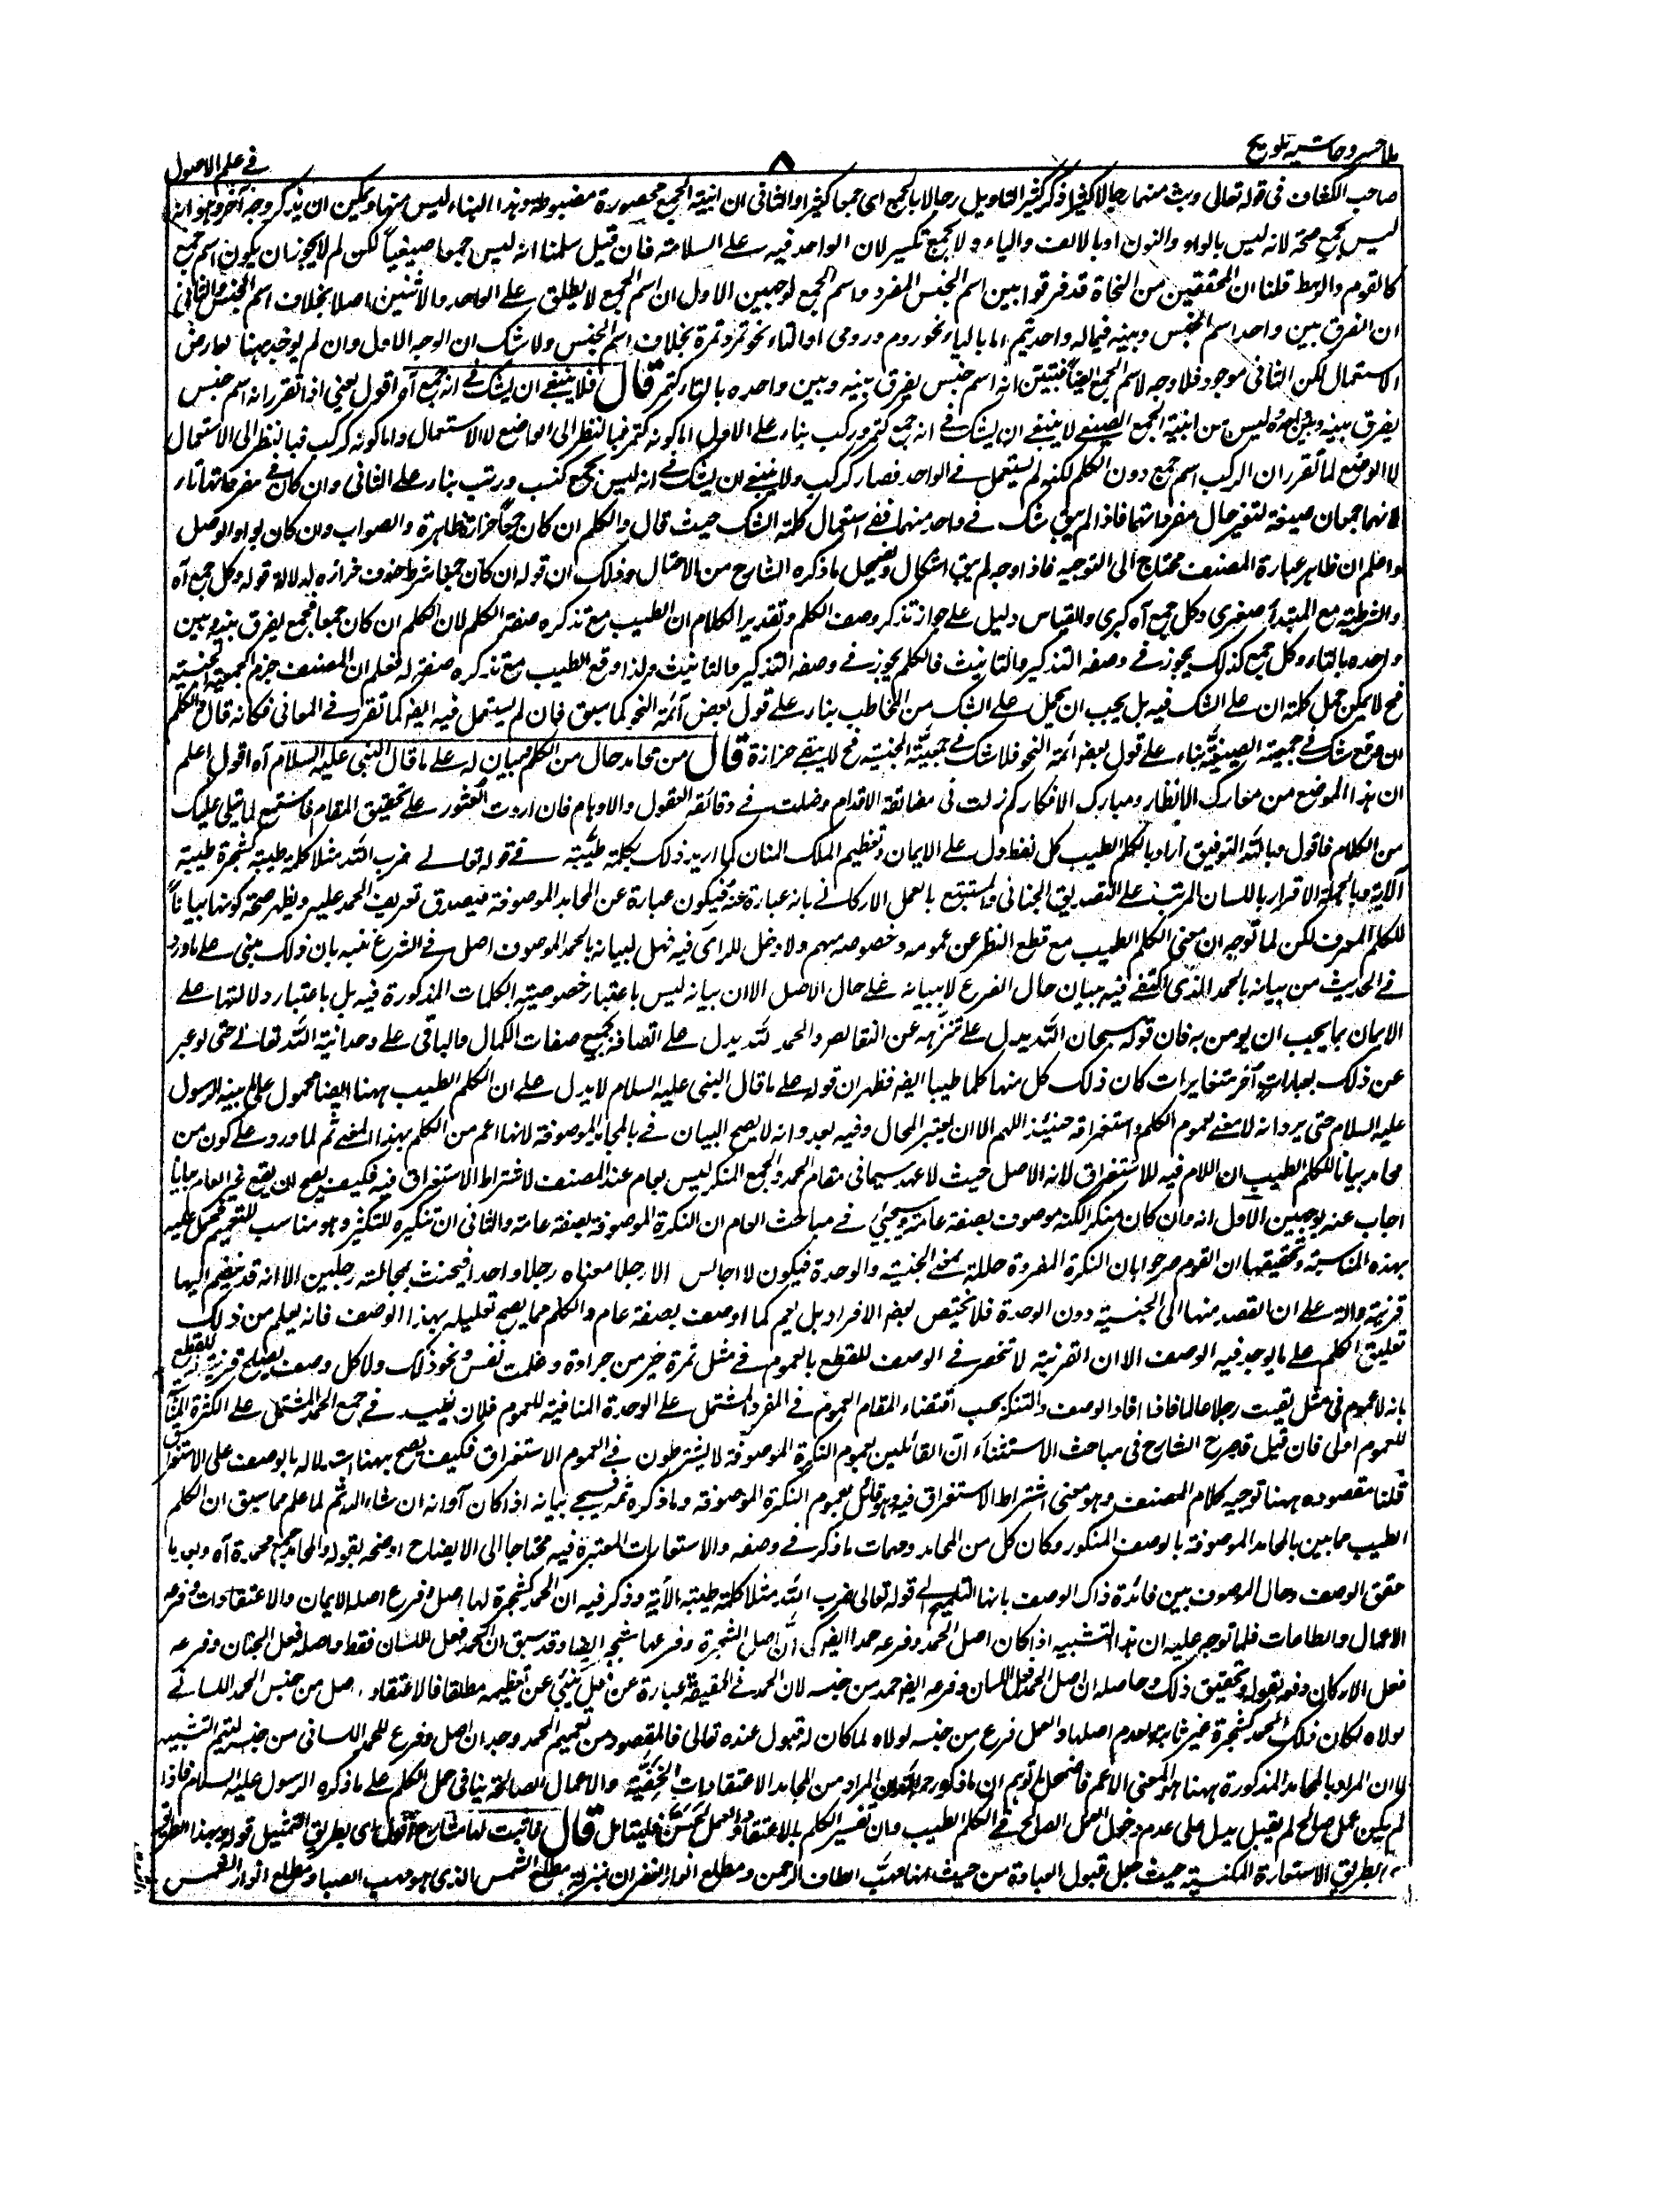 ملا خسرو حاشية تلويح
٨
في علم الاصول
صاحب الكشاف فى قوله تعالى وبث منهما رجالا كثيرا ذكر كثيرا لتاويل رجالا بالجمع اى جمعا كثيرا والثانى ان ابنية الجمع محصورة مضبوطة وهذا البناء ليس منها ويمكن ان يذكر وجه آخر وهو انه
ليس بجمع صحة لانه ليس بالواو والنون او بالالف والياء ولا بجمع تكسير لان الواحد فيه على السلامة فان قيل سلمنا انه ليس جمعا صيغيا لكن لم لا يجوز ان يكون اسم جمع
كالقوم والرهط قلنا ان المحققين من النحاة قد فرقوا بين اسم الجنس المفرد واسم الجمع لوجهين الاول ان اسم الجمع لا يطلق على الواحد والاثنين اصلا بخلاف اسم الجنس والثانى
ان الفرق بين واحد اسم الجنس وبينه فيما له واحد يتم اما بالياء نحو روم ورومى او التاء نحو تمر وتمرة بخلاف اسم الجنس ولا شك ان الوجه الاول وان لم يوجد ههنا لعارض
الاستعمال لكن الثانى موجود فلا وجه لاسم الجمع ايضا فتبين انه اسم جنس يفرق بينه وبين واحده بالتاء كتمر قال فلا ينبغى ان يشك فى انه جمع آه اقول يعنى اذا تقرر انه اسم جنس
يفرق بينه وبين واحده ليس من ابنية الجمع الصيغى لا ينبغى ان يشك فى انه جمع كتمر وركب بناء على الاول اما كونه كتمر فبالنظر الى الواضع لا الاستعمال واما كونه كركب فبالنظر الى الاستعمال
لا الوضع لما تقرر ان الركب اسم جمع دون الكلم لكنه لم يستعمل فى الواحد فصار كركب ولا ينبغى ان يشك فى انه ليس بجمع كنسب ورتب بناء على الثانى وان كان فى مفرداتها تاء
لانهما جمعان صيغة لتغير حال مفرداتهما فاذا لم يبق شك فى واحد منهما ففى استعمال كلمة الشك حيث قال والكلم ان كان جمعا حزازة ظاهرة والصواب وان كان بواو الوصل
واعلم ان ظاهر عبارة المصنف محتاج الى التوجيه فاذا وجه لم يبق اشكال ويضمحل ما ذكره الشارح من الاحتمال وذلك ان قوله ان كان جمعا شرط حذف جزاؤه لدلالة قوله وكل جمع آه
والشرطية مع المبتدأ صغرى وكل جمع آه كبرى والقياس دليل على جواز تذكر وصف الكلم وتقدير الكلام ان الطيب مع تذكره صفة الكلم لان الكلم ان كان جمعا فجمع يفرق بينه وبين
واحده بالتاء وكل جمع كذلك يجوز فى وصفه التذكير والتانيث فالكلم يجوز فى وصفه التذكير والتانيث ولذا وقع الطيب مع تذكره صفة له فعلم ان المصنف جزم بجمعيته الجنسية
فح لا يمكن حمل كلمة ان على الشك فيه بل يجب ان يحمل على الشك من المخاطب بناء على قول بعض آئمة النحو كما سبق فان لم يستعمل فيه ايضا كما تقرر فى المعانى فكانه قال الكلم
ان وقع شك فى جمعيته الصيغية بناء على قول بعض ائمة النحو فلا شك فى جمعيته الجنسية فح لا يبقى حزازة قال من محامد حال من الكلم بيان له على ما قال النبى عليه السلام آه اقول اعلم
ان هذا الموضع من معارك الانظار ومبارك الافكار كم زلت فى مضائقه الاقدام وضلت فى دقائقه العقول والاوهام فان اردت العثور على تحقيق المقام فاستمع لما يتلى عليك
من الكلام فاقول وبالله التوفيق اراد بالكلم الطيب كل لفظ دل على الايمان وتعظيم الملك المنان كما اريد ذلك بكلمة طيبة فى قوله تعالى ضرب الله مثلا كلمة طيبة كشجرة طيبة
الآية وبالجملة الاقرار باللسان المرتب على التصديق الجنانى والمستتبع بالعمل الاركانى بانه عبارة عنه فيكون عبارة عن المحامد الموصوفة فيصدق تعريف الحمد عليه ويظهر صحة كونها بيانا
للكلم المعرف لكن لما توجه ان معنى الكلم الطيب مع قطع النظر عن عمومه وخصوصه مبهم ولا دخل للراى فيه فهل لبيانه بالحمد الموصوف اصل فى الشرع نبه بان ذلك مبنى على ما ورد
فى الحديث من بيانه بالحمد الذى اكتفى فيه ببيان حال الفرع لابتنائه على حال الاصل الا ان بيانه ليس باعتبار خصوصية الكلمات المذكورة فيه بل باعتبار دلالتها على
الايمان بما يجب ان يومن به فان قوله سبحان الله يدل على تنزهه عن النقائص والحمد لله يدل على اتصافه بجميع صفات الكمال والباقى على وحدانية الله تعالى حتى لو عبر
عن ذلك بعبارات آخر متغايرات كان ذلك كل منها كلما طيبا ايضا فظهر ان قوله على ما قال النبى عليه السلام لا يدل على ان الكلم الطيب ههنا ايضا محمول على ما بينه الرسول
عليه السلام حتى يرد انه لا معنى لعموم الكلم واستغراقه حينئذ اللهم الا ان يعتبر المحال وفيه بعد وانه لا يصح البيان فى بالمحامد الموصوفة لانها اعم من الكلم بهذا المعنى ثم لما ورد على كون من
محامد بيانا للكلم الطيب ان اللام فيه للاستغراق لانه الاصل حيث لا عهد سيما فى مقام الحمد والجمع المنكر ليس بعام عند المصنف لاشتراط الاستغراق فيه فكيف يصح ان يقع غير العام بيانا
اجاب عنه بوجهين الاول انه وان كان منكرا لكنه موصوف بصفة عامة وسيجئ فى مباحث العام ان النكرة الموصوفة بصفة عامة والثانى ان تنكيره للتكثير وهو مناسب للتعميم فحمل عليه
بهذه المناسبة وتحقيقها ان القوم صرحوا بان النكرة المفردة حاملة لمعنى الجنسية والوحدة فيكون لا اجالس الا رجلا معناه رجلا واحدا فيحنث بمجالسة رجلين الا انه قد ينضم اليها
قرينة دالة على ان القصد منها الى الجنسية دون الوحدة فلا تختص بعض الافراد بل يعم كما اذا وصف بصفة عام والكلم مما يصح تعليله بهذا الوصف فانه يعلم من ذلك
تعليق الكلم على ما يوجد فيه الوصف الا ان القرينة لا تنحصر فى الوصف للقطع بالعموم فى مثل تمرة خير من جرادة وعلمت نفس ونحو ذلك ولا كل وصف يصلح قرينة للقطع
بانه لا عموم فى مثل لقيت رجلا عالما فاذا افاد الوصف والتنكير بحسب اقتضاء المقام العموم فى المفرد المشتمل على الوحدة المنافية للعموم فلان يفيد فى جمع الحمد المشتمل على الكثرة
للعموم اولى فان قيل قد صرح الشارح فى مباحث الاستثناء ان القائلين بعموم النكرة الموصوفة لا يشترطون فى العموم الاستغراق فكيف يصح ههنا استدلاله بالوصف على الاستغراق
قلنا مقصوده ههنا توجيه كلام المصنف وهو معنى اشتراط الاستغراق فيه وهو قائل بعموم النكرة الموصوفة وما ذكره ثمه سيجئ بيانه اذا كان آوانه ان شاء الله ثم لما علم مما سبق ان الكلم
الطيب مما بين بالمحامد الموصوفة بالوصف المذكور وكان كل من المحامد وصفات ما ذكر فى وصفه والاستعارات المعتبرة فيه محتاجا الى الايضاح اوضحه بقوله والمحامد جمع محمدة آه وبعد ما
حقق الوصف وحال الموصوف بين فائدة ذاك الوصف بانها التلميح الى قوله تعالى ضرب الله مثلا كلمة طيبة الآية وذكر فيه ان الحمد كشجرة لها اصل وفرع اصله الايمان والاعتقادات وفرعه
الاعمال والطاعات فلما توجه عليه ان هذا التشبيه اذا كان اصل الحمد وفرعه حمدا ايضا كما ان اصل الشجرة وفرعها شجر ايضا وقد سبق ان الحمد فعل اللسان فقط واصله فعل الجنان وفرعه
فعل الاركان دفعه بقوله وتحقيق ذلك وحاصله ان اصل الحمد فعل اللسان وفرعه ايضا حمد من جنسه لان الحمد فى الحقيقة عبارة عن فعل ينبئ عن تعظيمه مطلقا فالاعتقاد اصل من جنس الحمد اللسانى
لولاه لكان ذلك الحمد كشجرة غير ثابتة لعدم اصلها والعمل فرع من جنسه لولاه لما كان له قبول عنده تعالى فالمقصود من تعميم الحمد وجدان اصل وفرع للحمد اللسانى من جنسه ليتم التشبيه
لا ان المراد بالمحامد المذكورة ههنا هو المعنى الاعم فاضمحل ما توهم ان ما ذكره المراد من المحامد الاعتقادات الحقية والاعمال الصالحة ينافى حمل الكلم على ما ذكره الرسول عليه السلام فاذا
لم يكن عمل صالح لم يقبل يدل على عدم دخول العمل الصالح فى الكلم الطيب وان تفسير الكلم بالاعتقاد والعمل فليتامل قال فاثبت لها مشارع اقول اى بطريق التمثيل قوله وبهذا الطريق
بطريق الاستعارة المكنية حيث جعل قبول العبادة من حيث انها مهب الطاف الرحمن ومطلع انوار الغفران بمنزلة مطلع الشمس الذى هو مهب الصبا ومطلع انوار الشمس